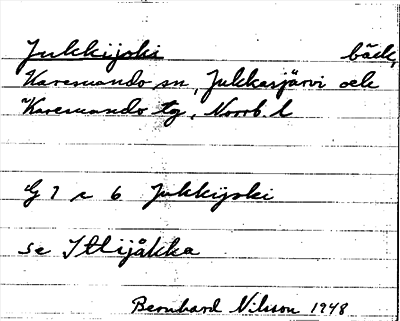 Jukkijoki bäck,
Karesuando sn, Jukkasjärvi och
Karesuando tg, Norrb. l
G 7 r 6 Jukkijoki
se
Bernhard Nilsson 1948